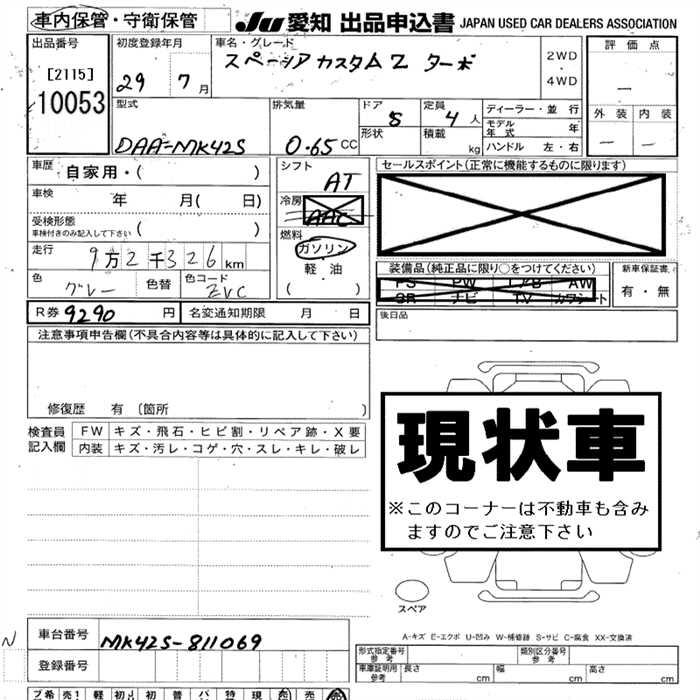 車内保管・守衛保管
JU 愛知 出品申込書 JAPAN USED CAR DEALERS ASSOCIATION
出品番号
[2115]
10053
初度登録年月
29 7月
車名・グレード
スペーシア カスタム Z ターボ
2WD
4WD
評価点
—
外装 内装
— —
型式
DAA-MK42S
排気量
0.65 CC
ドア
5
形状
定員
4人
積載
kg
ディーラー・並行
モデル年式 年
ハンドル 左・右
車歴
自家用・( )
車検
年 月( 日)
受検形態
車検付きのみ記入して下さい
( )
走行
9万2千326km
色
グレー
色替
色コード
ZVC
シフト
AT
冷房
AAC
燃料
ガソリン
軽油
( )
セールスポイント(正常に機能するものに限ります)
装備品(純正品に限り○をつけてください)
PS PW エアB AW
SR ナビ TV カワシート
新車保証書
有・無
後日品
R券 9290 円
名変通知期限 月 日
注意事項申告欄(不具合内容等は具体的に記入して下さい)
修復歴 有 〔箇所 〕
検査員記入欄
FW キズ・飛石・ヒビ割・リペア跡・X要
内装 キズ・汚レ・コゲ・穴・スレ・キレ・破レ
現状車
※このコーナーは不動車も含み
ますのでご注意下さい
スペア
A-キズ E-エクボ U-凹み W-補修跡 S-サビ C-腐食 XX-交換済
N
車台番号
MK42S-811069
登録番号
形式指定番号
参考
類別区分番号
参考
車庫証明用
参考
長さ cm
幅 cm
高さ cm